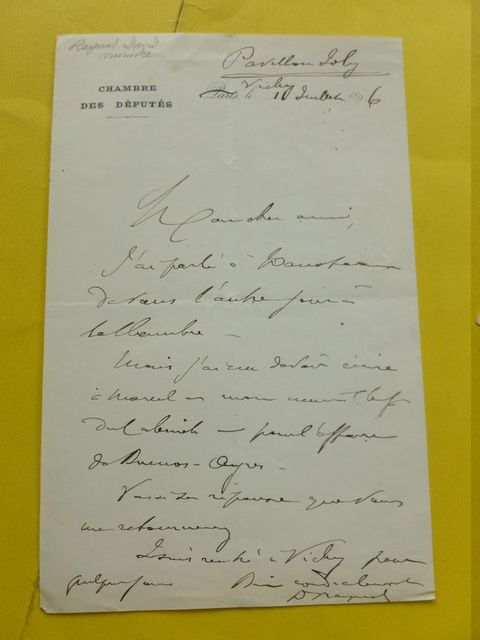 Raynal David
ministre
Pavillon Joly
CHAMBRE
DES DÉPUTÉS
Paris le Vichy 11 Juillet 1896
Mon cher ami,
J'ai parlé à
de vous l'autre jour à
la Chambre —
Mais j'ai cru devoir écrire
à Marcel — mon ancien Chef
du Cabinet — pour l'affaire
de Buenos-Ayres —
Voici sa réponse que vous
me retournerez
Je suis rentré à Vichy pour
quelques jours Bien cordialement
D Raynal